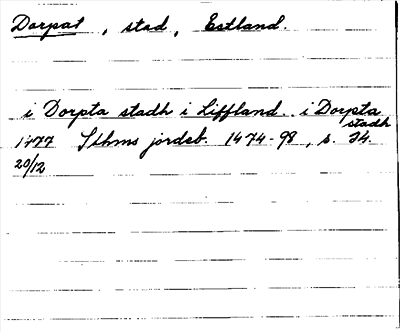 Dorpat, stad, Estland.
i Dorpta stadh i Liffland.. i Dorpta stadh
1477 Sthms jordeb. 1474-98, s. 24.
20/12